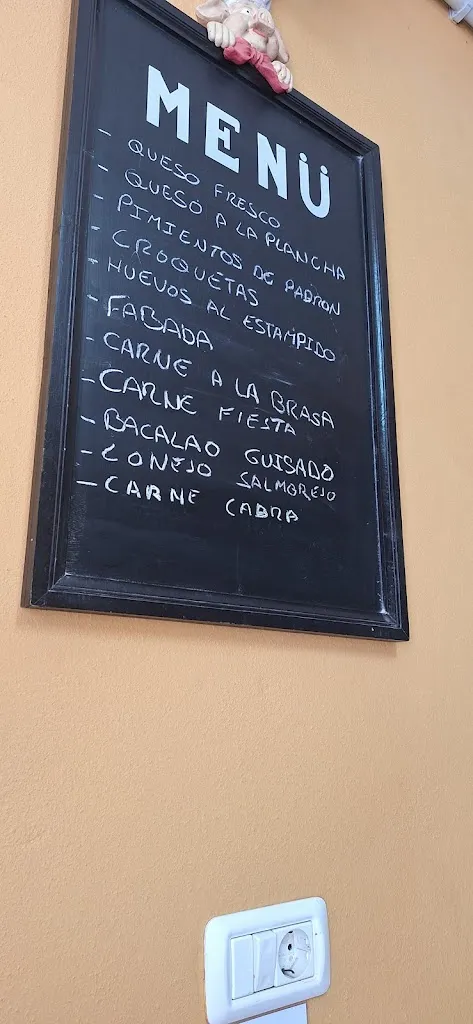 MENÜ
- QUESO FRESCO
- QUESO A LA PLANCHA
- PIMIENTOS DE PADRON
- CROQUETAS
- HUEVOS AL ESTAMPIDO
- FABADA
- CARNE A LA BRASA
- CARNE FIESTA
- BACALAO GUISADO
- CONEJO SALMOREJO
- CARNE CABRA